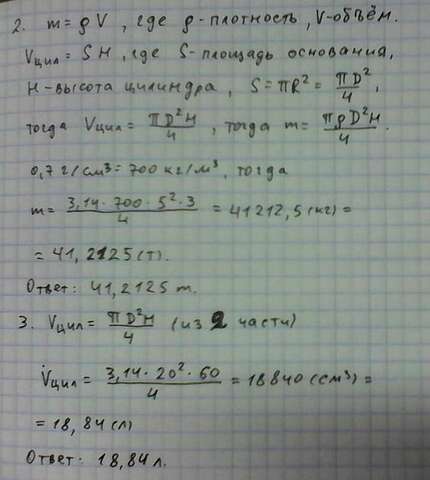 2. m = ρV, где ρ-плотность, V-объём.
Vцил = SH, где S-площадь основания,
H-высота цилиндра, S = πR² = πD²/4,
тогда Vцил = πD²H/4, тогда m = πρD²H/4.
0,7 г/см³ = 700 кг/м³, тогда
m = 3,14·700·5²·3/4 = 41212,5 (кг) =
= 41,2125 (т).
Ответ: 41,2125 т.
3. Vцил = πD²H/4 (из 2 части)
Vцил = 3,14·20²·60/4 = 18840 (см³) =
= 18,84 (л)
Ответ: 18,84 л.